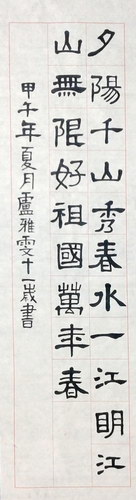 夕陽千山秀春水一江明江
山無限好祖國萬年春
甲午年夏月盧雅雯十一歲書